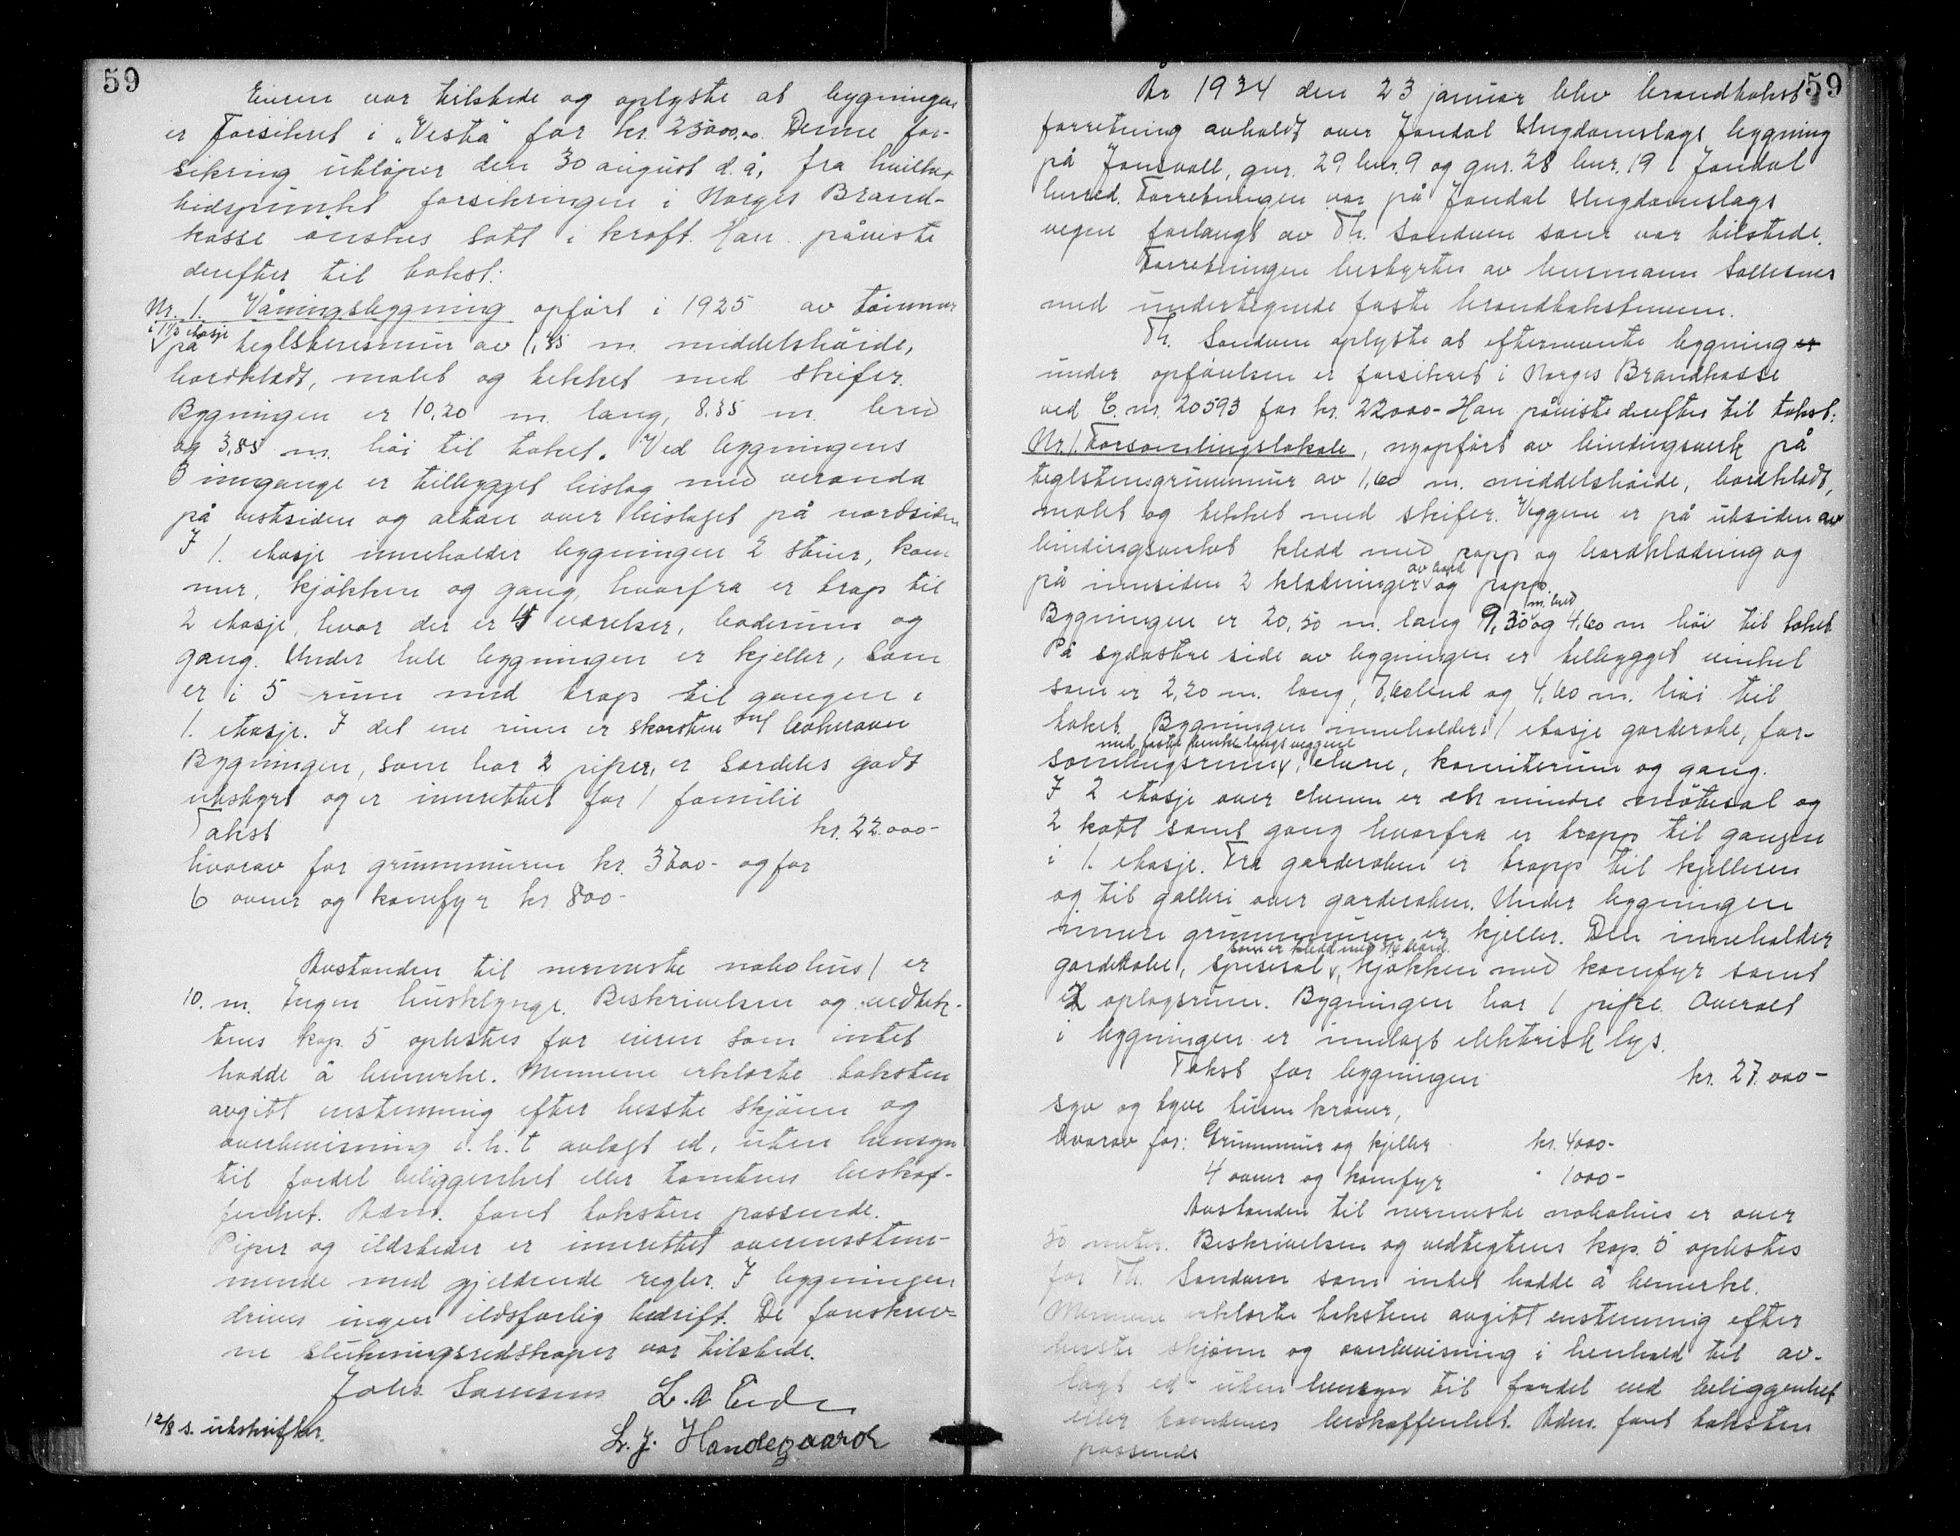 59
Eieren var tilstede og oplyste at bygningen
er forsikret i "Vesta" for kr. 23000,00. Denne for-
sikring utløper den 30 august d.å, fra hvilket
tidspunkt forsikringen i Norges Brand-
kasse ønskes satt i kraft. Han påviste
derefter til takst:
Nr. 1. Våningsbygning opført i 1925 av tømmer
i 1 1/2 etasje
på teglstensmur av 1,45 m. middelshøide,
bordklædt, malet og tekket med skifer.
Bygningen er 10,20 m. lang, 8.35 m. bred
og 3,85 m. høi til taket. Ved bygningens
3 innganger er tilbygget bislag med veranda
på vestsiden og altan over bislaget på nordsiden
I 1. etasje inneholder bygningen 2 stuer, kam
mer, kjøkken og gang, hvorfra er trap til
2 etasje, hvor der er 4 værelser, baderum og
gang. Under hele bygningen er kjeller, som
er i 5 rum med trap til gangen i
1. etasje. I det ene rum er skorsten m/ bakerovn
Bygningen, som har 2 piper, er særdeles godt
utstyrt og er innrettet for 1 familie
Takst kr. 22.000-
hvorav for grunnmuren kr. 3700- og for
6 ovner og komfyr kr 800-
Avstanden til nermeste nabohus / er
10. m. Ingen husklynge. Beskrivelsen og vedtek-
tens kap. 5 oplestes for eieren som intet
hadde å bemerke. Mennene erklærte taksten
avgitt enstemmig efter beste skjønn og
overbevisning i.h.t avlagt ed, uten hensyn
til fordel beliggenhet eller tomtens beskaf-
fenhet. Adm. fant taksten passende.
Piper og ildsteder er innrettet overensstem-
mende med gjeldende regler. I bygningen
drives ingen ildsfarlig bedrift. De foreskrev-
ne slukningsredskaper var tilstede.
Johs. Samsons L. A Eide
12/8 s. utskrifter. L. J. Handegaard
59
År 1934 den 23 januar blev brandtakst
forretning avholdt over Jondal Ungdomslags bygning
på Jonsvoll, gnr. 29 bnr. 9 og gnr. 28 bnr. 19 i Jondal
herred. Forretningen var på Jondal Ungdomslags
vegne forlangt av Th. Sandven som var tilstede.
Forretningen bestyrtes av lensmann Sollesnes
med undertegnede faste brandtakstmenn.
Th. Sandven oplyste at eftermevnte bygning
under opførelsen er forsikret i Norges Brandkasse
ved C. nr. 20593 for kr. 22000- Han påviste derefter til takst:
Nr. 1. Forsamlingslokale, nyopført av bindingsverk på
teglstensgrunnmur av 1,60 m. middelshøide, bordklædt,
malet og tekket med skifer. Veggene er på utsiden av
bindingsverket kledd med papp og bordklædning og
av bord
på innsiden 2 klædninger og papp.
m. bred
Bygningen er 20,50 m. lang 9,30 og 4,60 m høi til taket
På sydøstre side av bygningen er tilbygget vinkel
som er 2,20 m. lang, 7,60 bred og 4,60 m. høi til
taket. Bygningen inneholder i 1 etasje garderobe, for-
med faste benker langs veggene
samlingsrum, scene, komiterum og gang.
I 2 etasje over scenen er et mindre møtesal og
2 kott samt gang hvorfra er trapp til gangen
i 1. etasje. Fra garderoben er trapp til kjelleren
og til galleri over garderoben. Under bygningen
innen grunnmuren er kjeller. Den inneholder
som er kledd med 3/4 bord
garderobe, spisesal, kjøkken med komfyr samt
2 oplagsrum. Bygningen har 1 pipe. Overalt
i bygningen er innlagt elektrisk lys.
Takst for bygningen kr. 27.000-
syv og tyve tusen kroner,
hvorav for: Grunnmur og kjeller kr. 4000-
4 ovner og komfyr " 1000-
Avstanden til nermeste nabohus er over
50 meter. Beskrivelsen og vedtegtens kap. 5 oplestes
for Th. Sandven som intet hadde å bemerke.
Mennene erklærte takstene avgitt enstemmig efter
beste skjønn og overbevisning i henhold til av-
lagt ed uten hensyn til fordel ved beliggenhet
eller tomtens beskaffenhet. Adm. fant taksten
passende